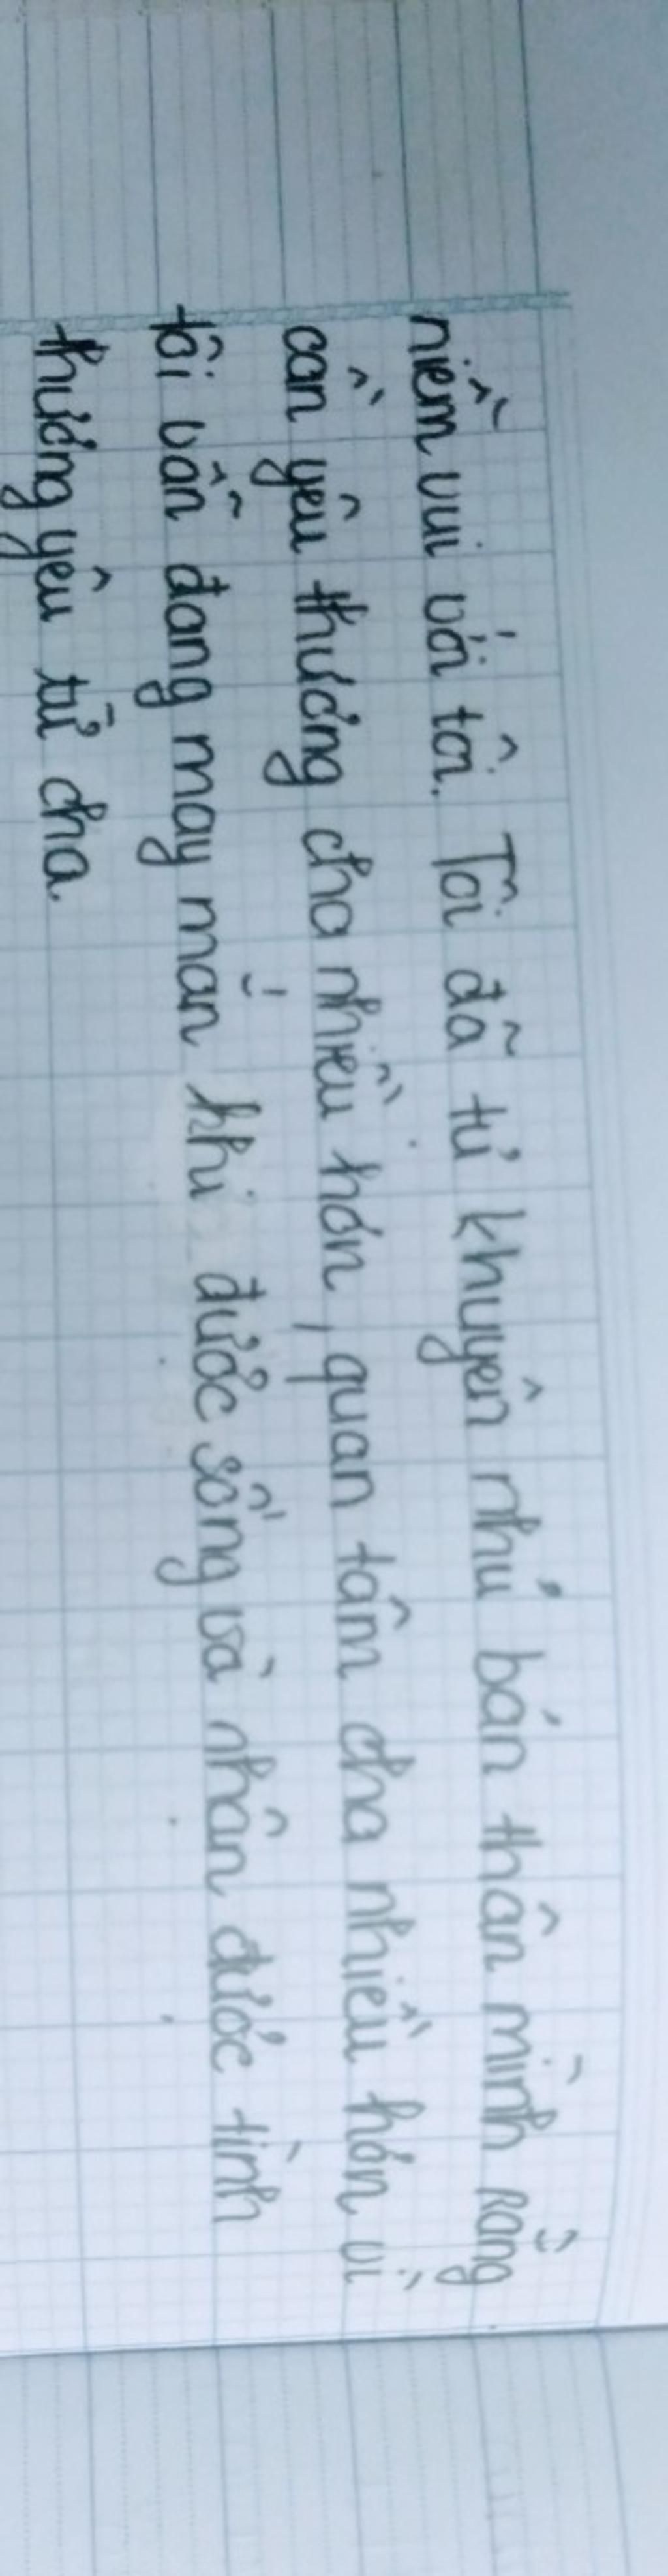 niềm vui với tôi. Tôi đã tự khuyên nhủ bản thân mình rằng
cần yêu thương cha nhiều hơn, quan tâm cha nhiều hơn vì
tôi vẫn đang may mắn khi được sống và nhận được tình
thương yêu từ cha.